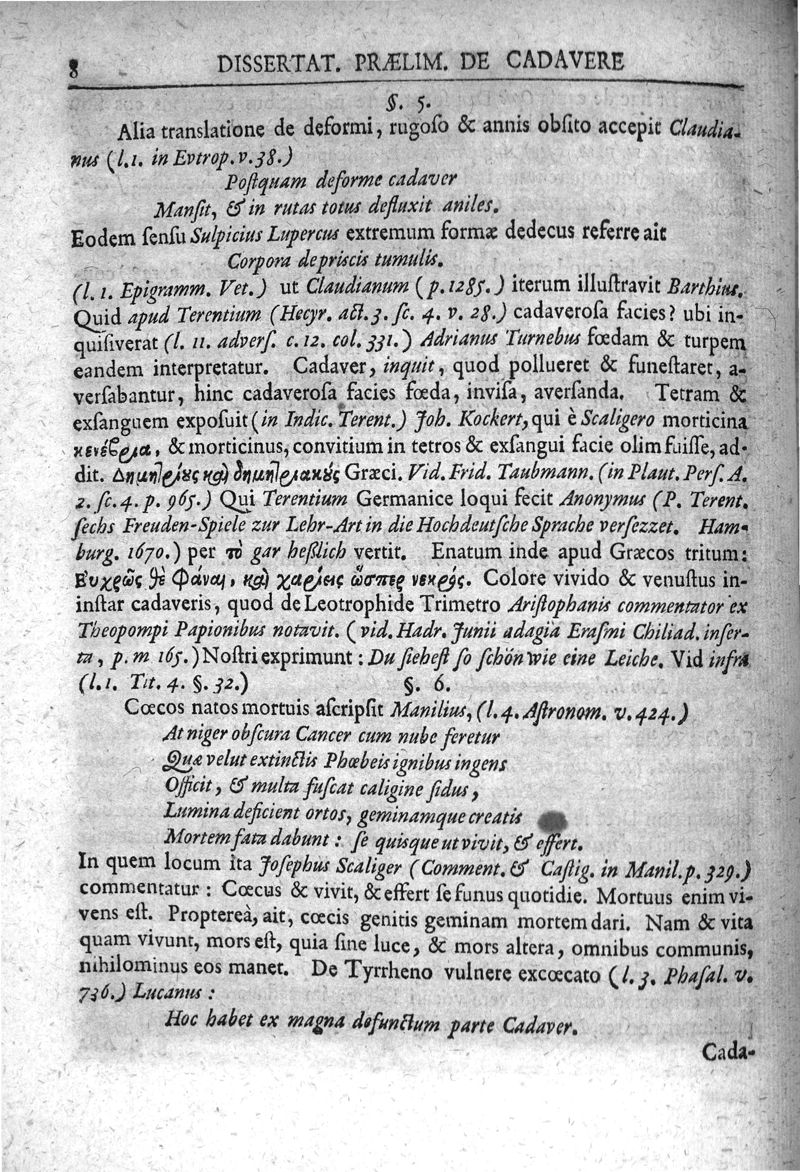 8 DISSERTAT. PRÆLIM. DE CADAVERE
§. 5.
Alia translatione de deformi, rugoſo & annis obſito accepit Claudia-
nus (l. 1. in Evtrop. v. 38.)
Poſtquam deforme cadaver
Manſit, & in rutas totus defluxit aniles.
Eodem ſenſu Sulpicius Lupercus extremum formæ dedecus referre ait
Corpora depriscis tumulis.
(l. 1. Epigramm. Vet.) ut Claudianum (p. 1285.) iterum illuſtravit Barthius.
Quid apud Terentium (Hecyr. act. 3. ſc. 4. v. 28.) cadaveroſa facies? ubi in-
quiſiverat (l. 11. adverſ. c. 12. col. 331.) Adrianus Turnebus fœdam & turpem
eandem interpretatur. Cadaver, inquit, quod pollueret & funeſtaret, a-
verſabantur, hinc cadaveroſa facies fœda, inviſa, averſanda. Tetram &
exſanguem expoſuit (in Indic. Terent.) Joh. Kockert, qui è Scaligero morticina
κενέβρια, & morticinus, convitium in tetros & exſangui facie olim fuiſſe, ad-
dit. Δημητρίȣς καὶ δημητριακȣ́ς Græci. Vid. Frid. Taubmann. (in Plaut. Perſ. A.
2. ſc. 4. p. 965.) Qui Terentium Germanice loqui fecit Anonymus (P. Terent.
ſechs Freuden-Spiele zur Lehr-Art in die Hochdeutſche Sprache verſezzet. Ham-
burg. 1670.) per τὸ gar heßlich vertit. Enatum inde apud Græcos tritum:
Ευχρῶς θὲ φάναι, καὶ χαρίεις ὥσπερ νεκρός. Colore vivido & venuſtus in-
inſtar cadaveris, quod de Leotrophide Trimetro Ariſtophanis commentator ex
Theopompi Papionibus notavit. (vid. Hadr. Junii adagia Eraſmi Chiliad. inſer-
ta, p. m 165.) Noſtri exprimunt: Du ſieheſt ſo ſchön wie eine Leiche. Vid infra
(l. 1. Tit. 4. §. 32.) §. 6.
Cœcos natos mortuis aſcripſit Manilius, (l. 4. Aſtronom. v. 424.)
At niger obſcura Cancer cum nube feretur
Quæ velut extinctis Phœbeis ignibus ingens
Officit, & multa fuſcat caligine ſidus,
Lumina deficient ortos, geminamque creatis
Mortem fata dabunt: ſe quisque ut vivit, & effert.
In quem locum ita Joſephus Scaliger (Comment. & Caſtig. in Manil. p. 329.)
commentatur: Cœcus & vivit, & effert ſe funus quotidie. Mortuus enim vi-
vens eſt. Propterea, ait, cœcis genitis geminam mortem dari. Nam & vita
quam vivunt, mors eſt, quia ſine luce, & mors altera, omnibus communis,
nihilominus eos manet. De Tyrrheno vulnere excœcato (l. 3. Phaſal. v.
736.) Lucanus:
Hoc habet ex magna defunctum parte Cadaver.
Cada-